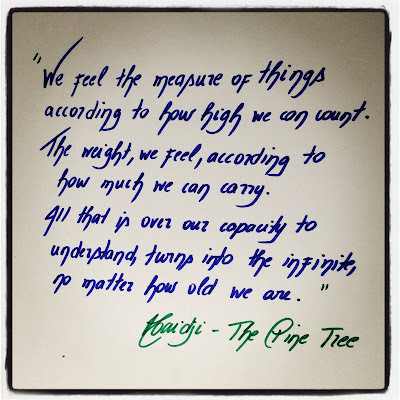 "We feel the measure of things
according to how high we can count.
The weight, we feel, according to
how much we can carry.
All that is over our capacity to
understand, turns into the infinite,
no matter how old we are."
Haidji - The Pine Tree